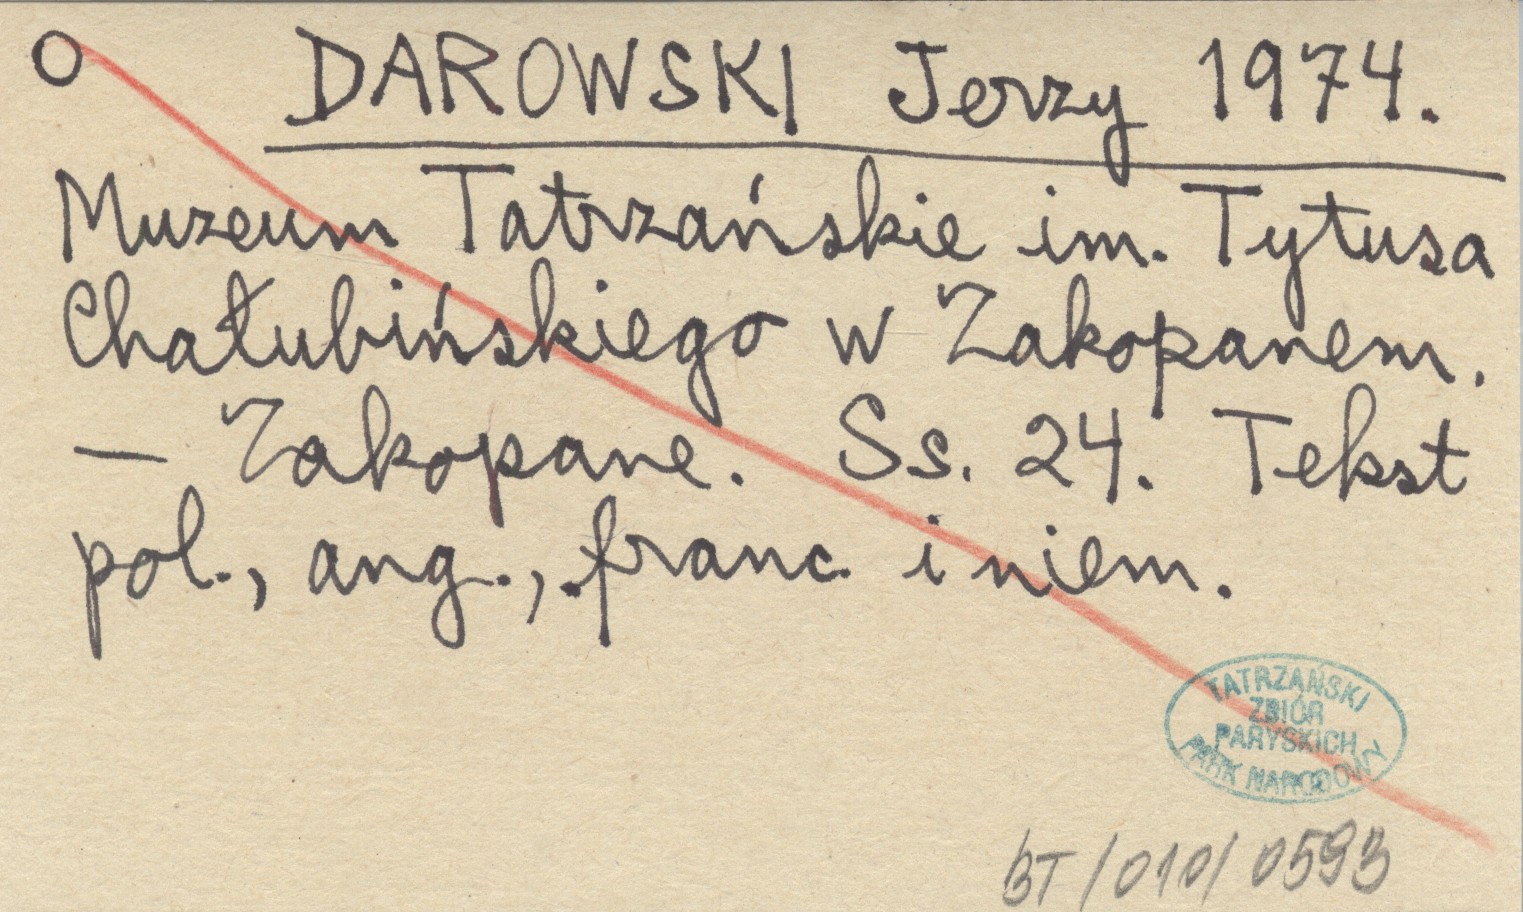 O DAROWSKI Jerzy 1974.
Muzeum Tatrzańskie im. Tytusa
Chałubińskiego w Zakopanem.
— Zakopane. Ss. 24. Tekst
pol., ang., franc. i niem.
TATRZAŃSKI
ZBIÓR
PARYSKICH
PARK NARODOWY
BT/010/0593